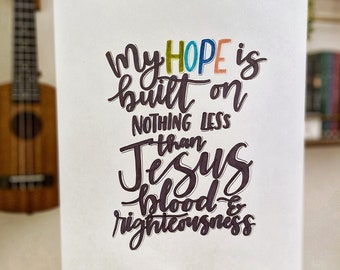 My HOPE is
built on
NOTHING LESS
than
Jesus
blood &
righteousness